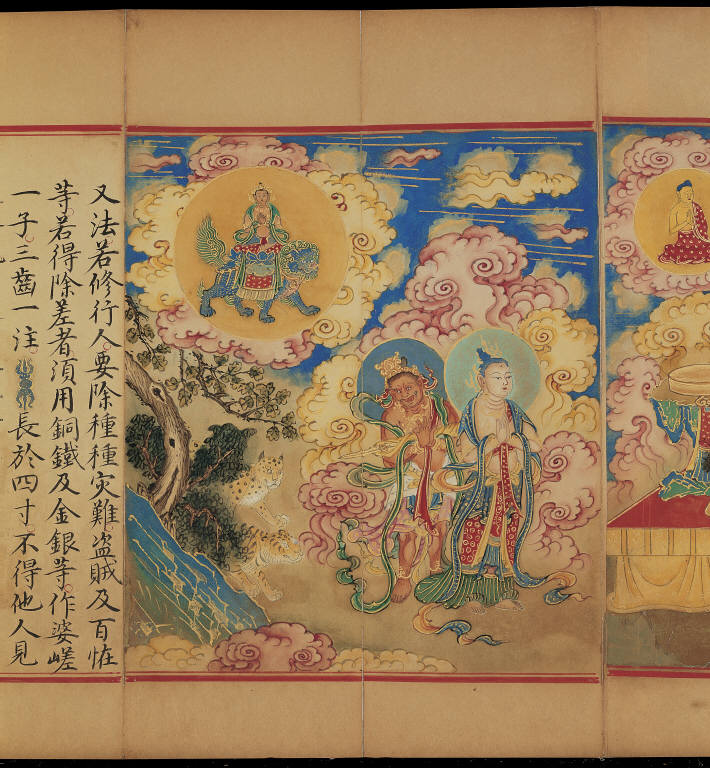 又法若修行人要除種種灾難盜賊及百恠
等若得除差者須用銅鐵及金銀等作婆嵯
一子三齒一注長於四寸不得他人見